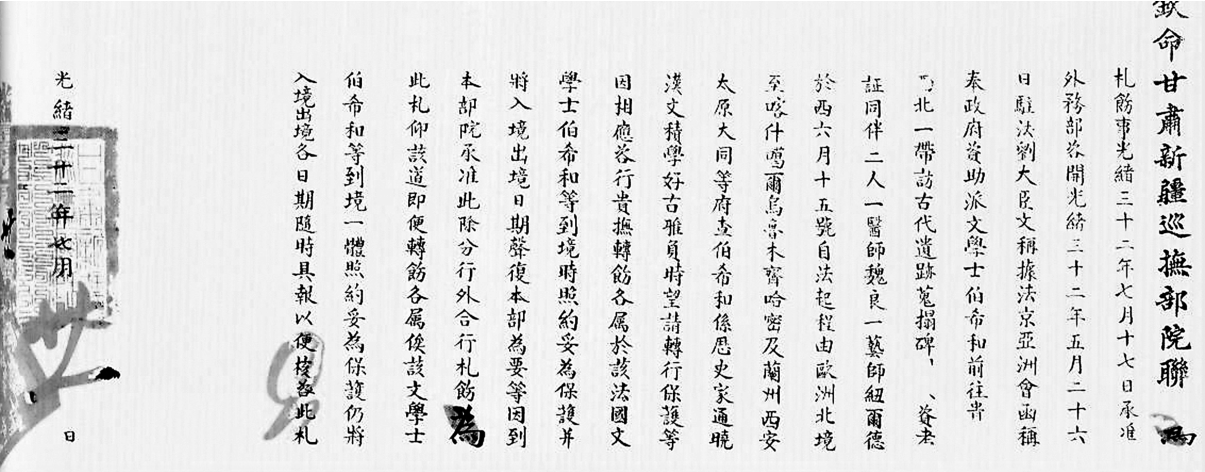 欽命甘肅新疆巡撫部院聯 為
札飭事光緒三十二年七月十七日承准
外務部咨開光緒三十二年五月二十六
日駐法劉大臣文稱據法京亞洲會函稱
奉政府資助派文學士伯希和前往
北一帶訪古代遺跡蒐搨碑
証同伴二人一醫師魏良一藝師紐爾德
於西六月十五號自法起程由歐洲北境
至喀什噶爾烏魯木齊哈密及蘭州西安
太原大同等府查伯希和係歷史家通曉
漢文積學好古雅負時望請轉行保護等
因相應咨行貴撫轉飭各属於該法國文
學士伯希和等到境時照約妥為保護并
將入境出境日期聲復本部為要等因到
本部院承准此除分行外合行札飭為
此札仰該道即便轉飭各属俟該文學士
伯希和等到境一體照約妥為保護仍將
入境出境各日期随時具報以便核咨此札
光緒三十二年七月 日